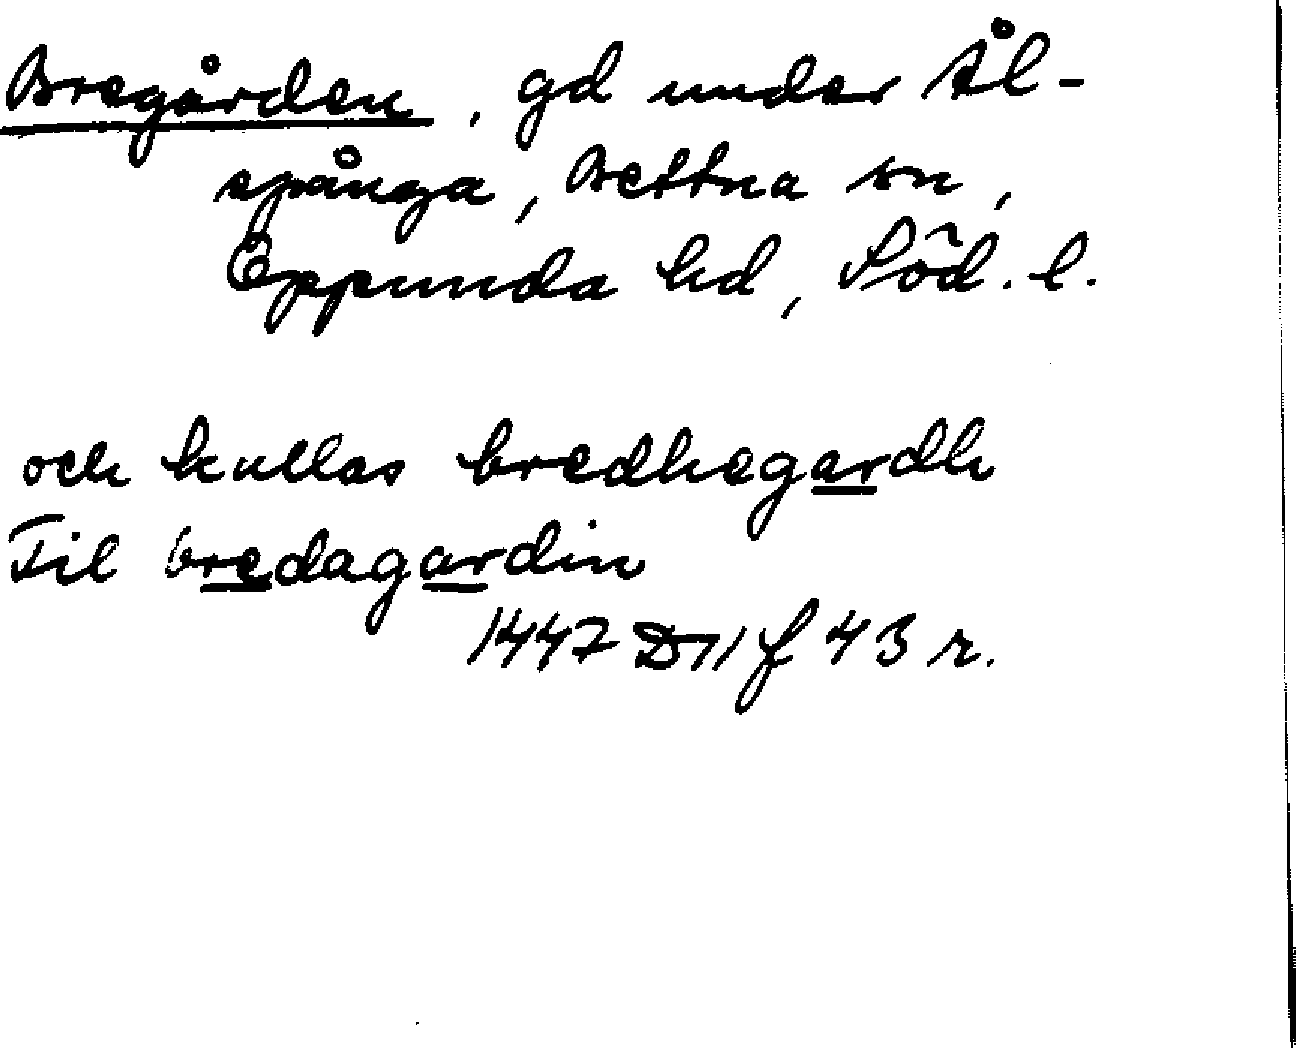 Bregården, gd under Ål-
spånga, Bettna sn,
Oppunda hd, Söd. l.
och kallas bredhegardh
Til bredagardin
1447 D 11 f 43 r.